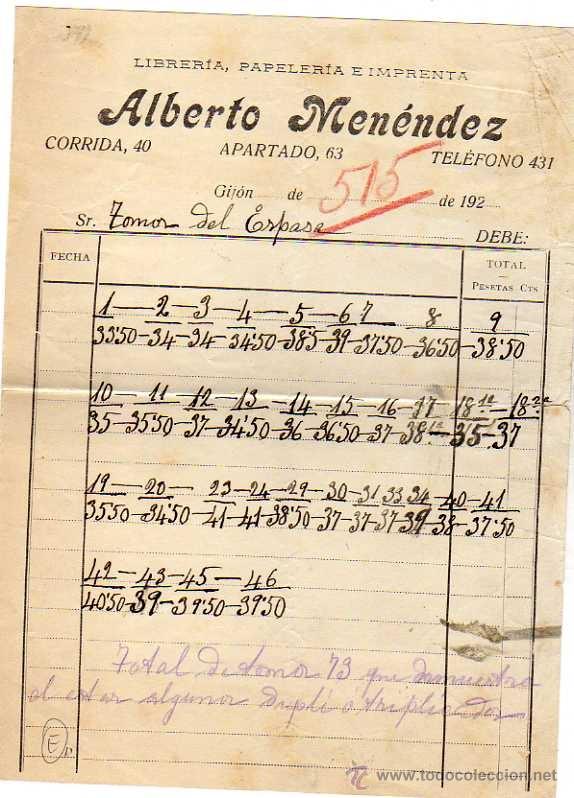 LIBRERÍA, PAPELERÍA E IMPRENTA
Alberto Menéndez
CORRIDA, 40 APARTADO, 63 TELÉFONO 431
515
Gijón de de 192
Sr. Tomos del Espasa DEBE:
FECHA TOTAL
PESETAS CTS
1 — 2 — 3 — 4 — 5 — 6 7 — 8 9
33'50 — 34 — 34 — 34'50 — 38'5 — 39 — 37'50 — 36'50 — 38'50
10 — 11 — 12 — 13 — 14 — 15 — 16 — 17 18 1ª — 18 2ª
35 — 35'50 — 37 — 34'50 — 36 — 36'50 — 37 — 38 — 35 — 37
19 — 20 — 23 — 24 — 29 — 30 — 31 33 34 — 40 — 41
35'50 — 34'50 — 41 — 41 — 38'50 — 37 — 37 — 37 — 39 — 38 — 37'50
42 — 43 — 45 — 46
40'50 — 39 — 39'50 — 39'50
Total de tomos 73 que
al estar algunos dupli o triplicados
E
www.todocoleccion.net